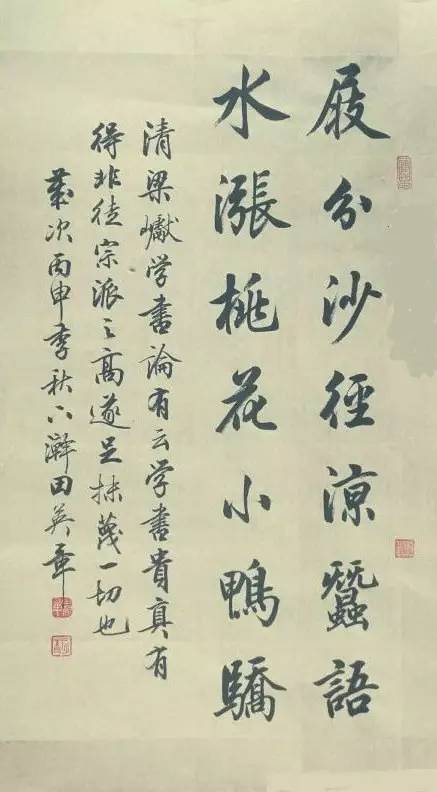 屐分沙徑涼蠶語
水漲桃花小鴨驕
清梁巘学書論有云学書貴真有
得非徒宗派之高遂足抹蔑一切也
歲次丙申季秋下澣田英章